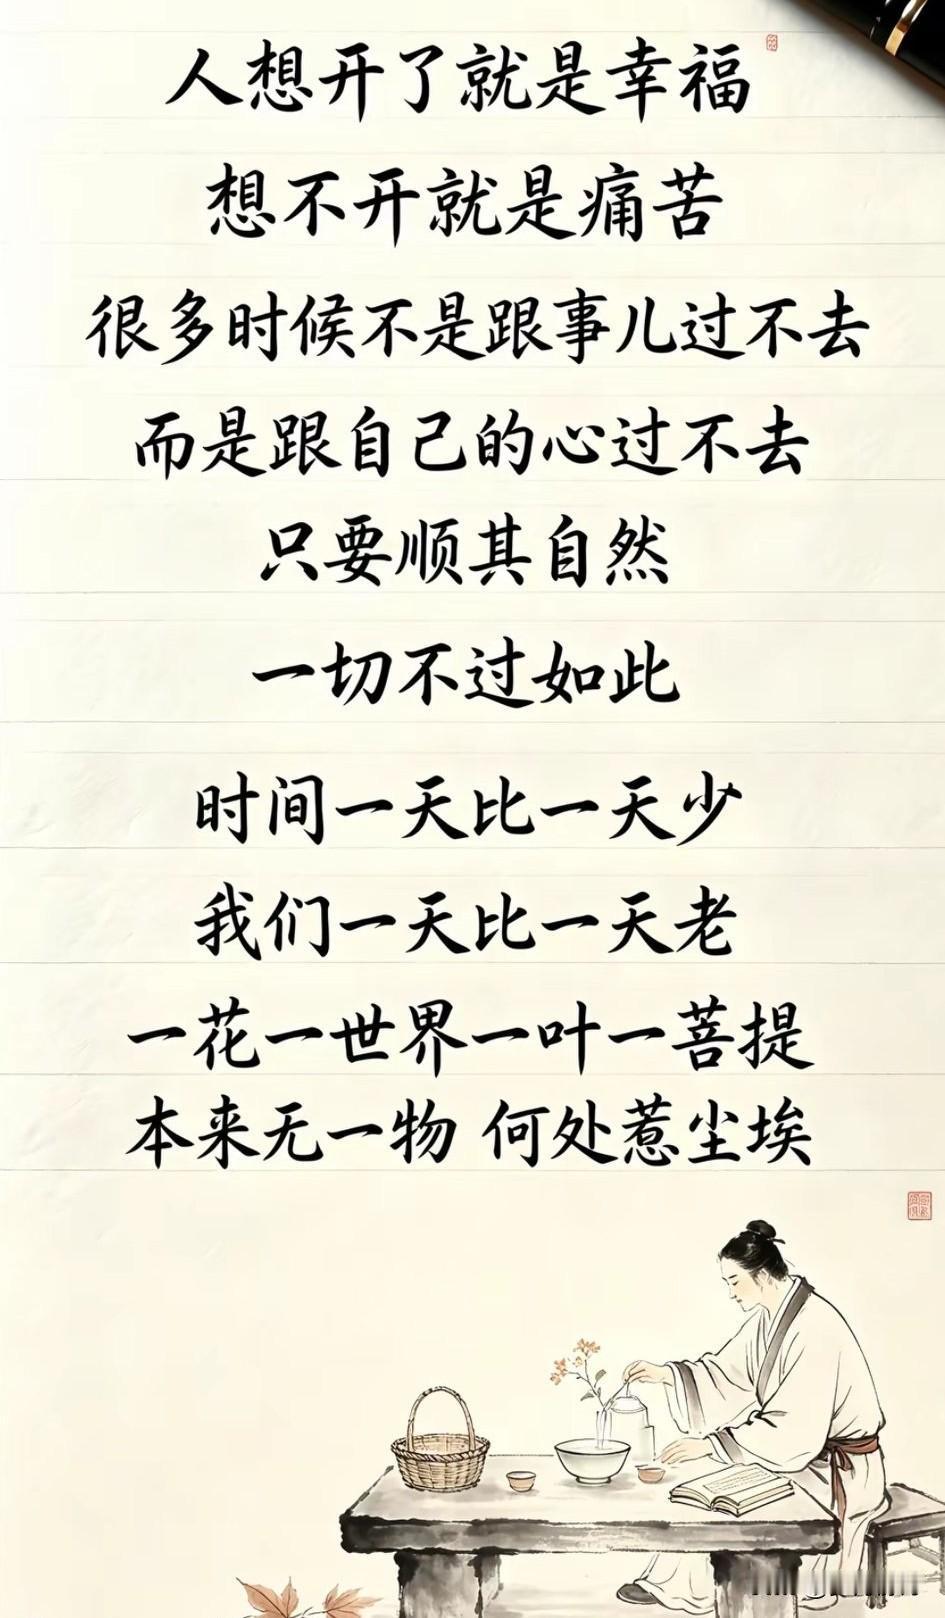 人想开了就是幸福
想不开就是痛苦
很多时候不是跟事儿过不去
而是跟自己的心过不去
只要顺其自然
一切不过如此
时间一天比一天少
我们一天比一天老
一花一世界一叶一菩提
本来无一物 何处惹尘埃